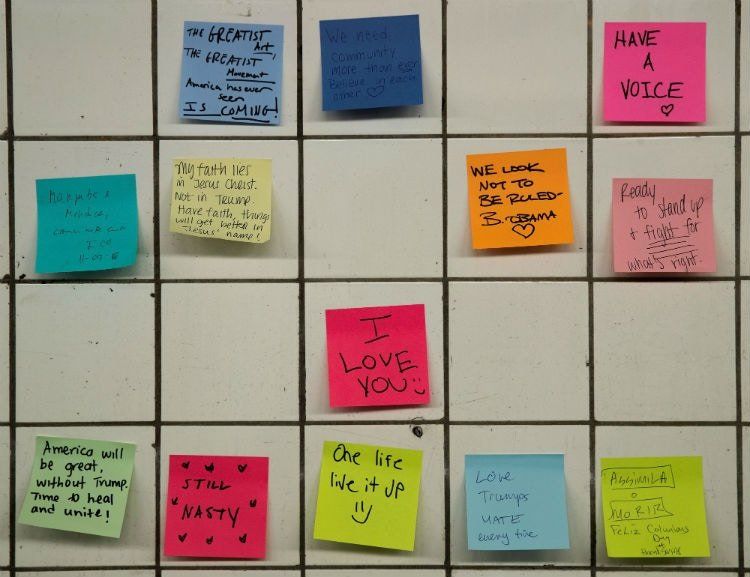 THE GREATIST
Art,
THE GREATIST
Movement
America has ever
seen
IS COMING!
We need
Community
more than ever
Believe in each
other
HAVE
A
VOICE
My faith lies
in Jesus Christ.
Not in Trump.
Have faith, things
will get better in
Jesus' name!
WE LOOK
NOT TO
BE RULED-
B. OBAMA
Ready
to stand up
+ fight for
what's right.
I
LOVE
YOU
America will
be great,
without Trump.
Time to heal
and unite!
STILL
NASTY
One life
live it up
Love
Trumps
HATE
every time
ASSIMILA
O
MORIR
Feliz Columbus
Day